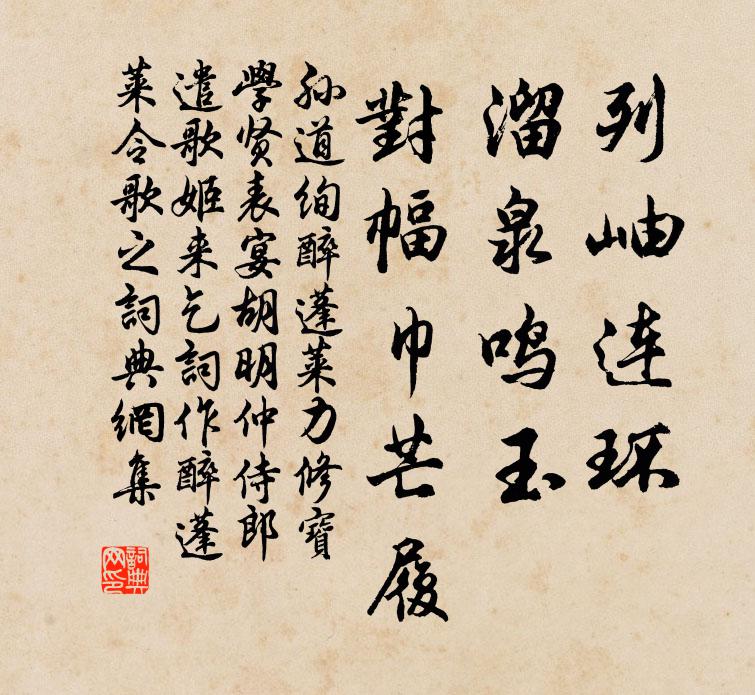 列岫连环
溜泉鸣玉
對幅巾芒履
孙道绚醉蓬莱力修寶
學贤表宴胡明仲侍郎
遣歌姬来乞詞作醉蓬
莱令歌之詞典網集
詞典网印